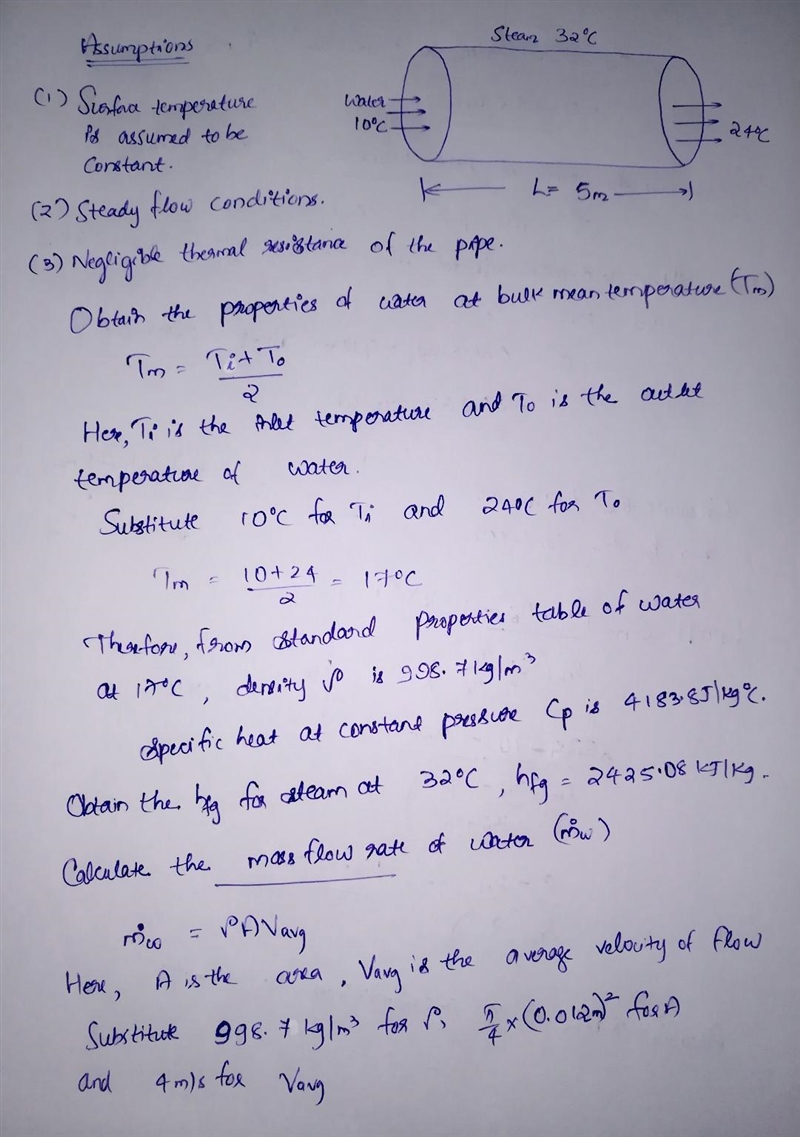 Assumptions
Steam 32°C
(1) Surface temperature
is assumed to be
Constant.
Water
10°C
24°C
L= 5m
(2) Steady flow conditions.
(3) Negligible thermal resistance of the pipe.
Obtain the properties of water at bulk mean temperature (Tm)
Tm = Ti + To / 2
Here, Ti is the inlet temperature and To is the outlet
temperature of water.
Substitute 10°C for Ti and 24°C for To
Tm = 10+24 / 2 = 17°C
Therefore, from standard properties table of water
at 17°C, density ρ is 998.7 kg/m³
Specific heat at constant pressure Cp is 4183.8 J/kg°C.
Obtain the hfg for steam at 32°C, hfg = 2425.08 kJ/kg.
Calculate the mass flow rate of water (ṁw)
ṁw = ρAVavg
Here, A is the area, Vavg is the average velocity of flow
Substitute 998.7 kg/m³ for ρ, π/4 × (0.012m)² for A
and 4m/s for Vavg